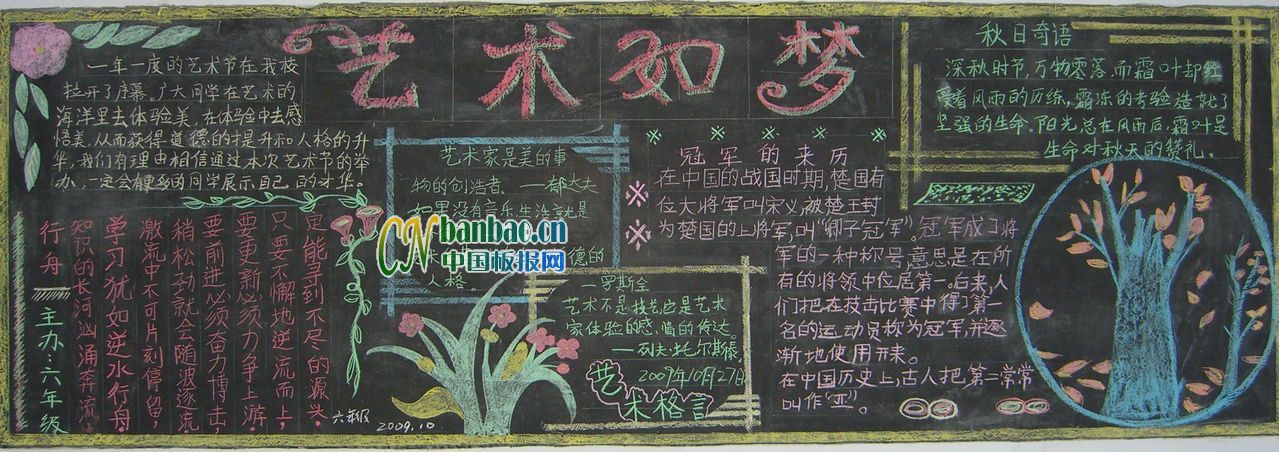 艺术如梦
一年一度的艺术节在我校
拉开了序幕。广大同学在艺术的
海洋里去体验美，在体验中去感
悟美，从而获得道德的提升和人格的升
华，我们有理由相信通过本次艺术节的举
办，一定会使更多的同学展示自己的才华。
行舟
知识的长河汹涌奔流，
学习犹如逆水行舟
激流中不可片刻停留，
稍松劲就会随波逐流
要前进必须奋力博击，
要更新必须力争上游
只要不懈地逆流而上，
定能寻到不尽的源头。
主办：六年级
六年级
2009.10
艺术家是美的事
物的创造者。——郁达夫
如果没有音乐生活就是
德的
人格。
CN banbao.cn
中国板报网
—罗斯金
艺术不是技艺，它是艺术
家体验的感情的传达。
——列夫·托尔斯泰
2009年10月27日
艺术格言
冠军的来历
在中国的战国时期，楚国有
位大将军叫宋义，被楚王封
为楚国的上将军，叫“卿子冠军”。冠军成了将
军的一种称号，意思是在所
有的将领中位居第一。后来，人
们把在技击比赛中得了第一
名的运动员称为冠军，并逐
渐地使用开来。
在中国历史上，古人把第二常常
叫作“亚”。
秋日奇语
深秋时节，万物零落，而霜叶却经
受着风雨的历练，霜冻的考验造就了
坚强的生命。阳光总在风雨后，霜叶是
生命对秋天的赞礼。